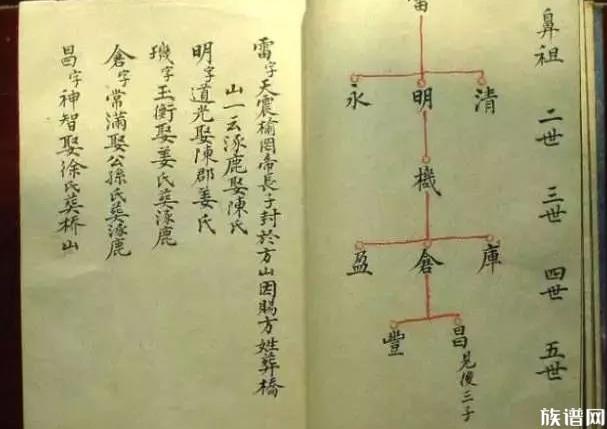 鼻祖 二世 三世 四世 五世
雷
清 明 永
機
庫 倉 盈
昌 見後三子 豐
雷字天震榆罔帝長子封於方山因賜方姓葬橋
山一云涿鹿娶陳氏
明字道光娶陳郡姜氏
璣字玉衡娶姜氏葬涿鹿
倉字常滿娶公孫氏葬涿鹿
昌字神智娶徐氏葬桥山
族谱网